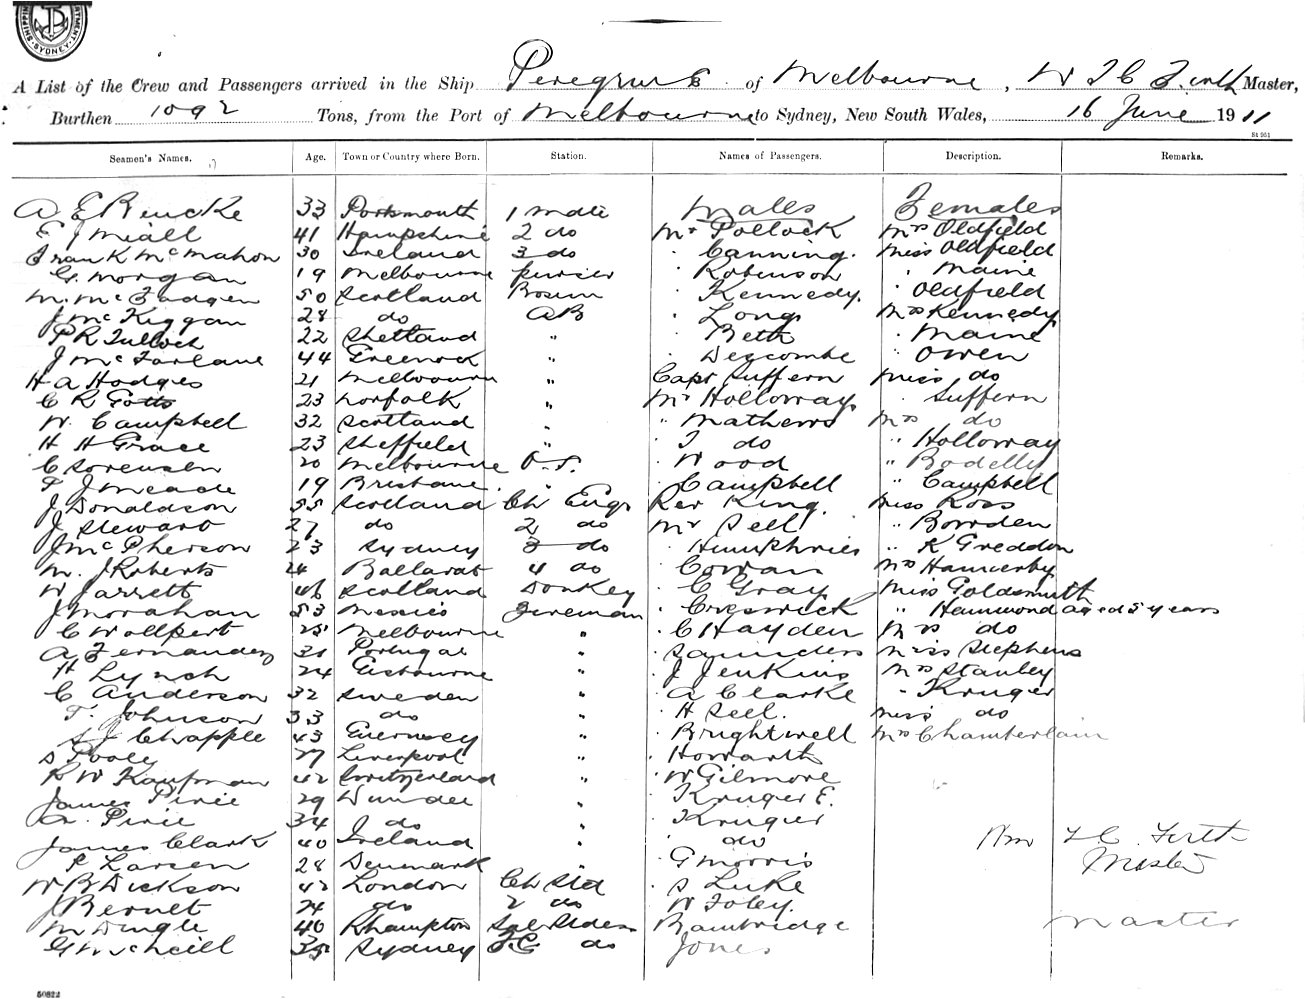 SHIPPING DEPARTMENT. SYDNEY.
A List of the Crew and Passengers arrived in the Ship Peregrine of Melbourne, W T C Firth Master,
Burthen 1092 Tons, from the Port of Melbourne to Sydney, New South Wales, 16 June 1911
St 951
Seamen's Names. Age. Town or Country where Born. Station. Names of Passengers. Description. Remarks.
A E Rencke 33 Portsmouth 1 Mate Males Females
E J Miall 41 Hampshire 2 do Mr Pollock Mrs Oldfield
Frank McMahon 30 Ireland 3 do " Canning. Miss Oldfield
G. Morgan 19 Melbourne purser " Robinson " Maine
M. McFadgen 50 Scotland Bosun " Kennedy. " Oldfield
J McKiggan 28 do AB " Long Mrs Kennedy
P R Tulloch 22 Shetland " " Beth " Maine
J McFarlane 44 Greenock " " Descombe " Owen
H A Hodges 21 Melbourne " Capt Suffern Miss do
C R Gotts 23 Norfolk " Mr Holloway " Suffern
W. Campbell 32 Scotland " " Mathews Mrs do
H H Grace 23 Sheffield " " T do " Holloway
C Sorensen 20 Melbourne O.S. " Wood " Bodelly
F J Meade 19 Brisbane " " Campbell " Campbell
J Donaldson 55 Scotland Ch Engr Rev King. Miss Ross
J Stewart 27 do 2 do Mr Sell " Bowden
J McPherson 23 Sydney 3 do " Humphries " K Greddon
M. J Roberts Ballarat 4 do " Cowan Mrs Hannerby
W Jarrett 46 Scotland Donkey " C Gray Miss Goldsmith
J Monahan 53 Fireman " Creswick " Hammond aged 5 years
C Wollpert 25 Melbourne " " C Hayden Mrs do
A Fernandez 31 Portugal " " Saunders Miss Stephens
H Lynch 24 Gisbourne " " J Jenkins Mrs Stanley
C Anderson 32 Sweden " " A Clarke " Kruger
T. Johnson 33 do " " H Sell. Miss do
S J Chapple 43 Guernsey " " Brightwell Mrs Chamberlain
S Pooley 27 Liverpool " " Howarth
R W Kaufman 42 Switzerland " " W Gilmore
James Pirie 29 Dundee " " Kruger E.
A. Pirie 34 do " " Kruger
James Clark 40 Ireland " " do Wm T C Firth
P Larsen 28 Denmark " " G Morris Master
W B Dickson 42 London Ch Std " S Luke
J Bernet 24 do 2 do " W Foley.
M Dingle 40 Rhampton Sal Stdess " Bambridge Master
G McNeill 35 Sydney F.C. do Jones
50822